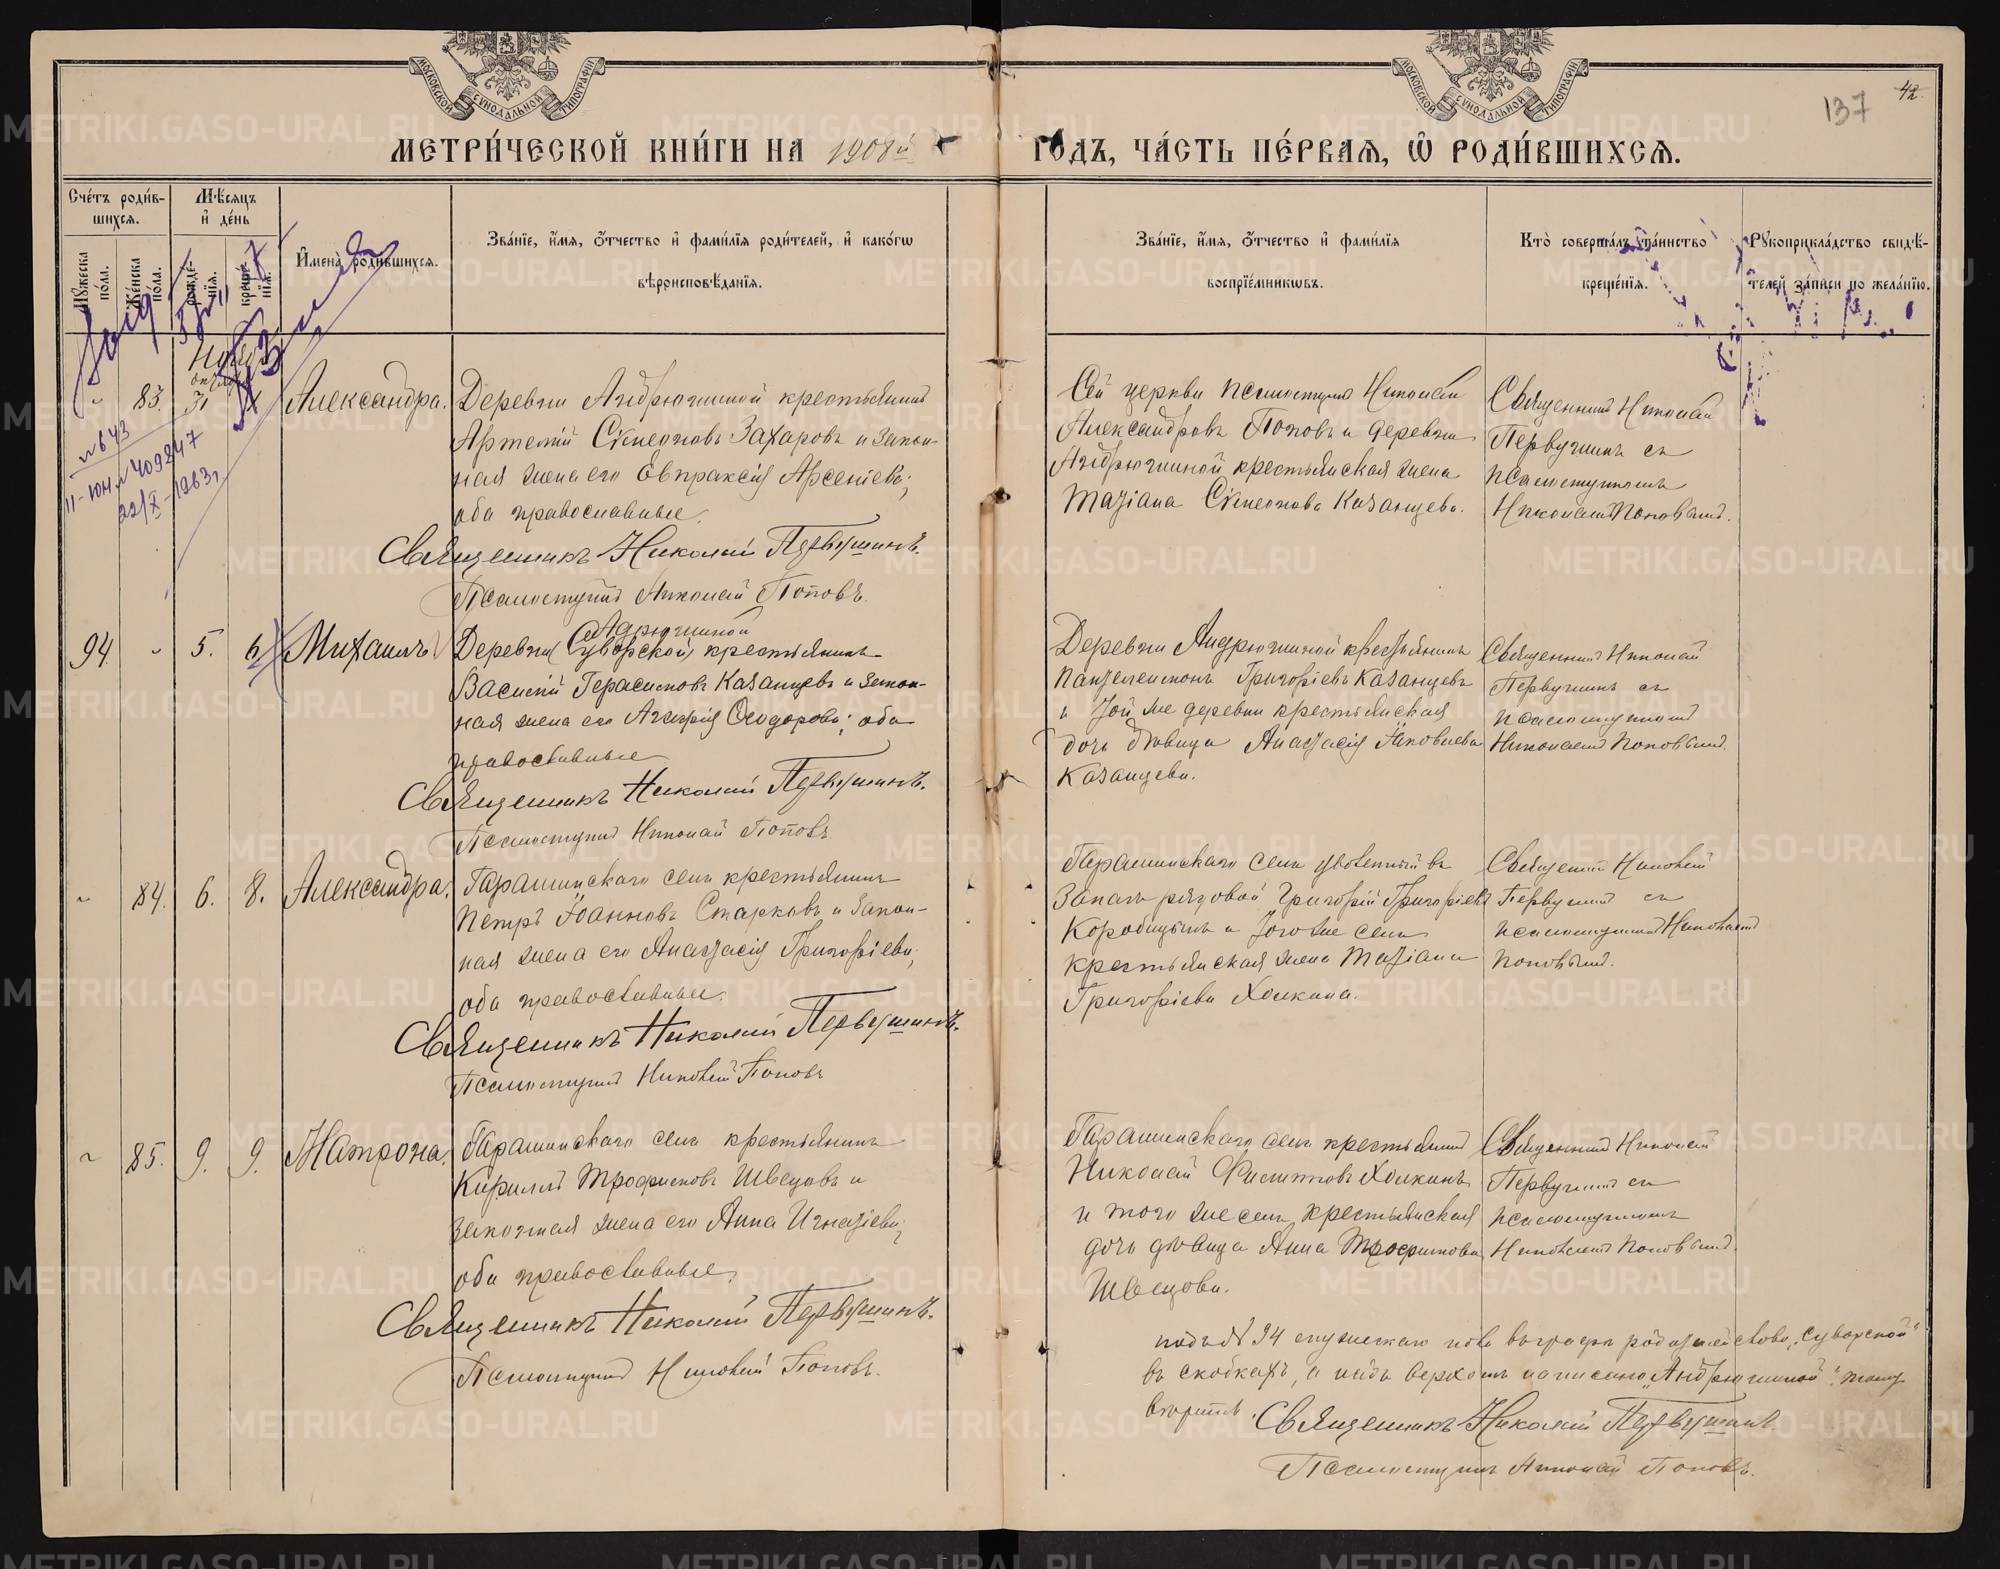 МОСКОВСКОЙ СѴНОДАЛЬНОЙ ТИПОГРАФІИ
МОСКОВСКОЙ СѴНОДАЛЬНОЙ ТИПОГРАФІИ
137
42.
МЕТРИ́ЧЕСКОЙ КНИ́ГИ НА 1908й ГОДЪ, ЧА́СТЬ ПЕ́РВАЯ, Ѡ РОДИ́ВШИХСЯ.
Сче́тъ роди́в-
шихся.
Мѣ́сяцъ
и҆ де́нь
Мꙋ́жеска по́ла.
Же́нска по́ла.
рожде́-
нїя.
креще́-
нїя.
И҆мена̀ роди́вшихся.
Зва́нїе, и҆́мя, ѻ҆́тчество и҆ фами́лїя роди́телей, и҆ како́гѡ
вѣроисповѣ́данїя.
Зва́нїе, и҆́мя, ѻ҆́тчество и҆ фами́лїя
воспрїе́мникѡвъ.
Кто̀ соверша́лъ та́инство
креще́нїя.
Рꙋкоприкла́дство свидѣ́-
телей за́писи по жела́нїю.
83. 31 Александра.
Деревни Андрюшиной крестьянинъ
Артемій Сѵмеоновъ Захаровъ и закон-
ная жена его Евпраксія Арсеніева;
оба православные.
Священникъ Николай Первушинъ.
Псаломщикъ Николай Поповъ.
Сей церкви псаломщикъ Николай
Александровъ Поповъ и деревни
Андрюшиной крестьянская жена
Татіана Сѵмеонова Казанцева.
Священникъ Николай
Первушинъ съ
псаломщикомъ
Николаемъ Поповымъ.
№643
409247
22/X-1963г
94. " 5. 6 Михаилъ
Андрюшиной
Деревни (Суворской) крестьянинъ
Василій Герасимовъ Казанцевъ и закон-
ная жена его Агафія Ѳеодорова; оба
православные
Священникъ Николай Первушинъ.
Псаломщикъ Николай Поповъ
Деревни Андрюшиной крестьянинъ
Пантелеимонъ Григоріевъ Казанцевъ
и той же деревни крестьянская
дочь дѣвица Анастасія Іаковлева
Казанцева.
Священникъ Николай
Первушинъ съ
псаломщикомъ
Николаемъ Поповымъ.
" 84. 6. 8. Александра.
Гарашинскаго села крестьянинъ
Петръ Іоанновъ Старковъ и закон-
ная жена его Анастасія Григоріева;
оба православные.
Священникъ Николай Первушинъ.
Псаломщикъ Николай Поповъ
Гарашинскаго села уволенный въ
запасъ рядовой Григорій Григоріевъ
Коробицынъ и того же села
крестьянская жена Татіана
Григоріева Холкина.
Священникъ Николай
Первушинъ съ
псаломщикомъ Николаемъ
Поповымъ.
" 85. 9. 9. Матрона.
Гарашинскаго села крестьянинъ
Кириллъ Трофимовъ Швецовъ и
законная жена его Анна Игнатіева;
оба православные.
Священникъ Николай Первушинъ.
Псаломщикъ Николай Поповъ.
Гарашинскаго села крестьянинъ
Николай Филипповъ Холкинъ
и того же села крестьянская
дочь дѣвица Анна Трофимова
Швецова.
Священникъ Николай
Первушинъ съ
псаломщикомъ
Николаемъ Поповымъ.
подъ № 94 слово „Суворской"
въ скобкахъ, а надъ верхомъ написано „Андрюшиной" тому
вѣрить. Священникъ Николай Первушинъ
Псаломщикъ Николай Поповъ.
METRIKI.GASO-URAL.RU